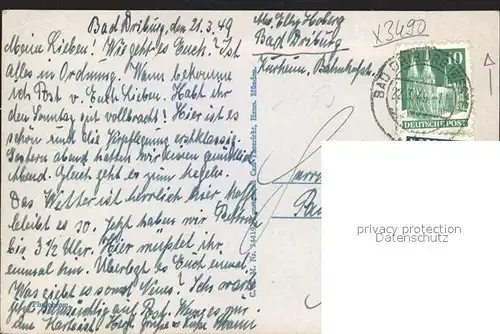 Bad Driburg, den 21.3.49
Meine Lieben! Wie geht es Euch? Ist
alles in Ordnung. Wann bekomme
ich Post v. Euch Lieben. Habt ihr
den Sonntag gut vollbracht! Hier ist es
schön und die Verpflegung erstklassig.
Gestern abend hatten wir einen gemütlich
Abend. Gleich geht es zum kegeln.
Das Wetter ist herrlich hier hoff.
bleibt es so. Jetzt haben wir Bettruhe
bis 3 1/2 Uhr. Hier müßtet ihr
einmal hin. Überlegt es Euch einmal.
Was gibt es sonst Neues? Ich warte
sehnsüchtig auf Post.
Herzl. Grüße u. Küße Mami
Abs. Elly
Bad Driburg
Kurheim, Bahnhofstr.
x3490
BAD DRIBURG
10
DEUTSCHE POST
privacy protection
Datenschutz